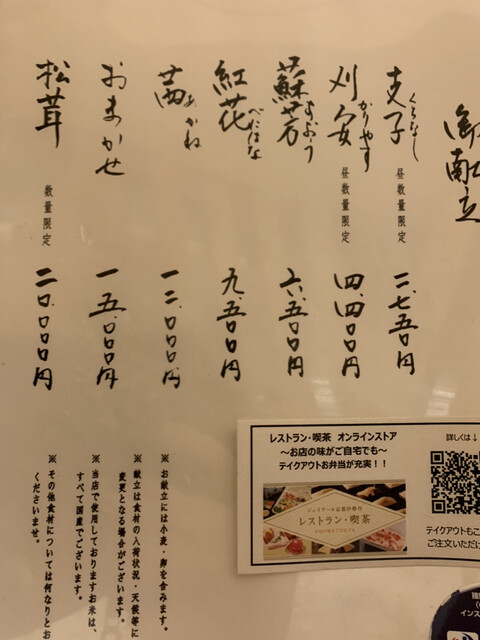 御献立
支子 くちなし 昼数量限定 二、七五〇円
刈安 かりやす 昼数量限定 四、四〇〇円
蘇芳 すおう 六、五〇〇円
紅花 べにばな 九、五〇〇円
茜 あかね 一二、〇〇〇円
おまかせ 一五、〇〇〇円
松茸 数量限定 二〇、〇〇〇円
※お献立には小麦・卵を含みます。
※献立は食材の入荷状況・天候等に
変更となる場合がございます。
※当店で使用しておりますお米は、
すべて国産でございます。
※その他食材については何なりとお
くださいませ。
レストラン・喫茶 オンラインストア
～お店の味がご自宅でも～
テイクアウトお弁当が充実！！
レストラン・喫茶
詳しくは↓
テイクアウトもこ
ご注文いただけ